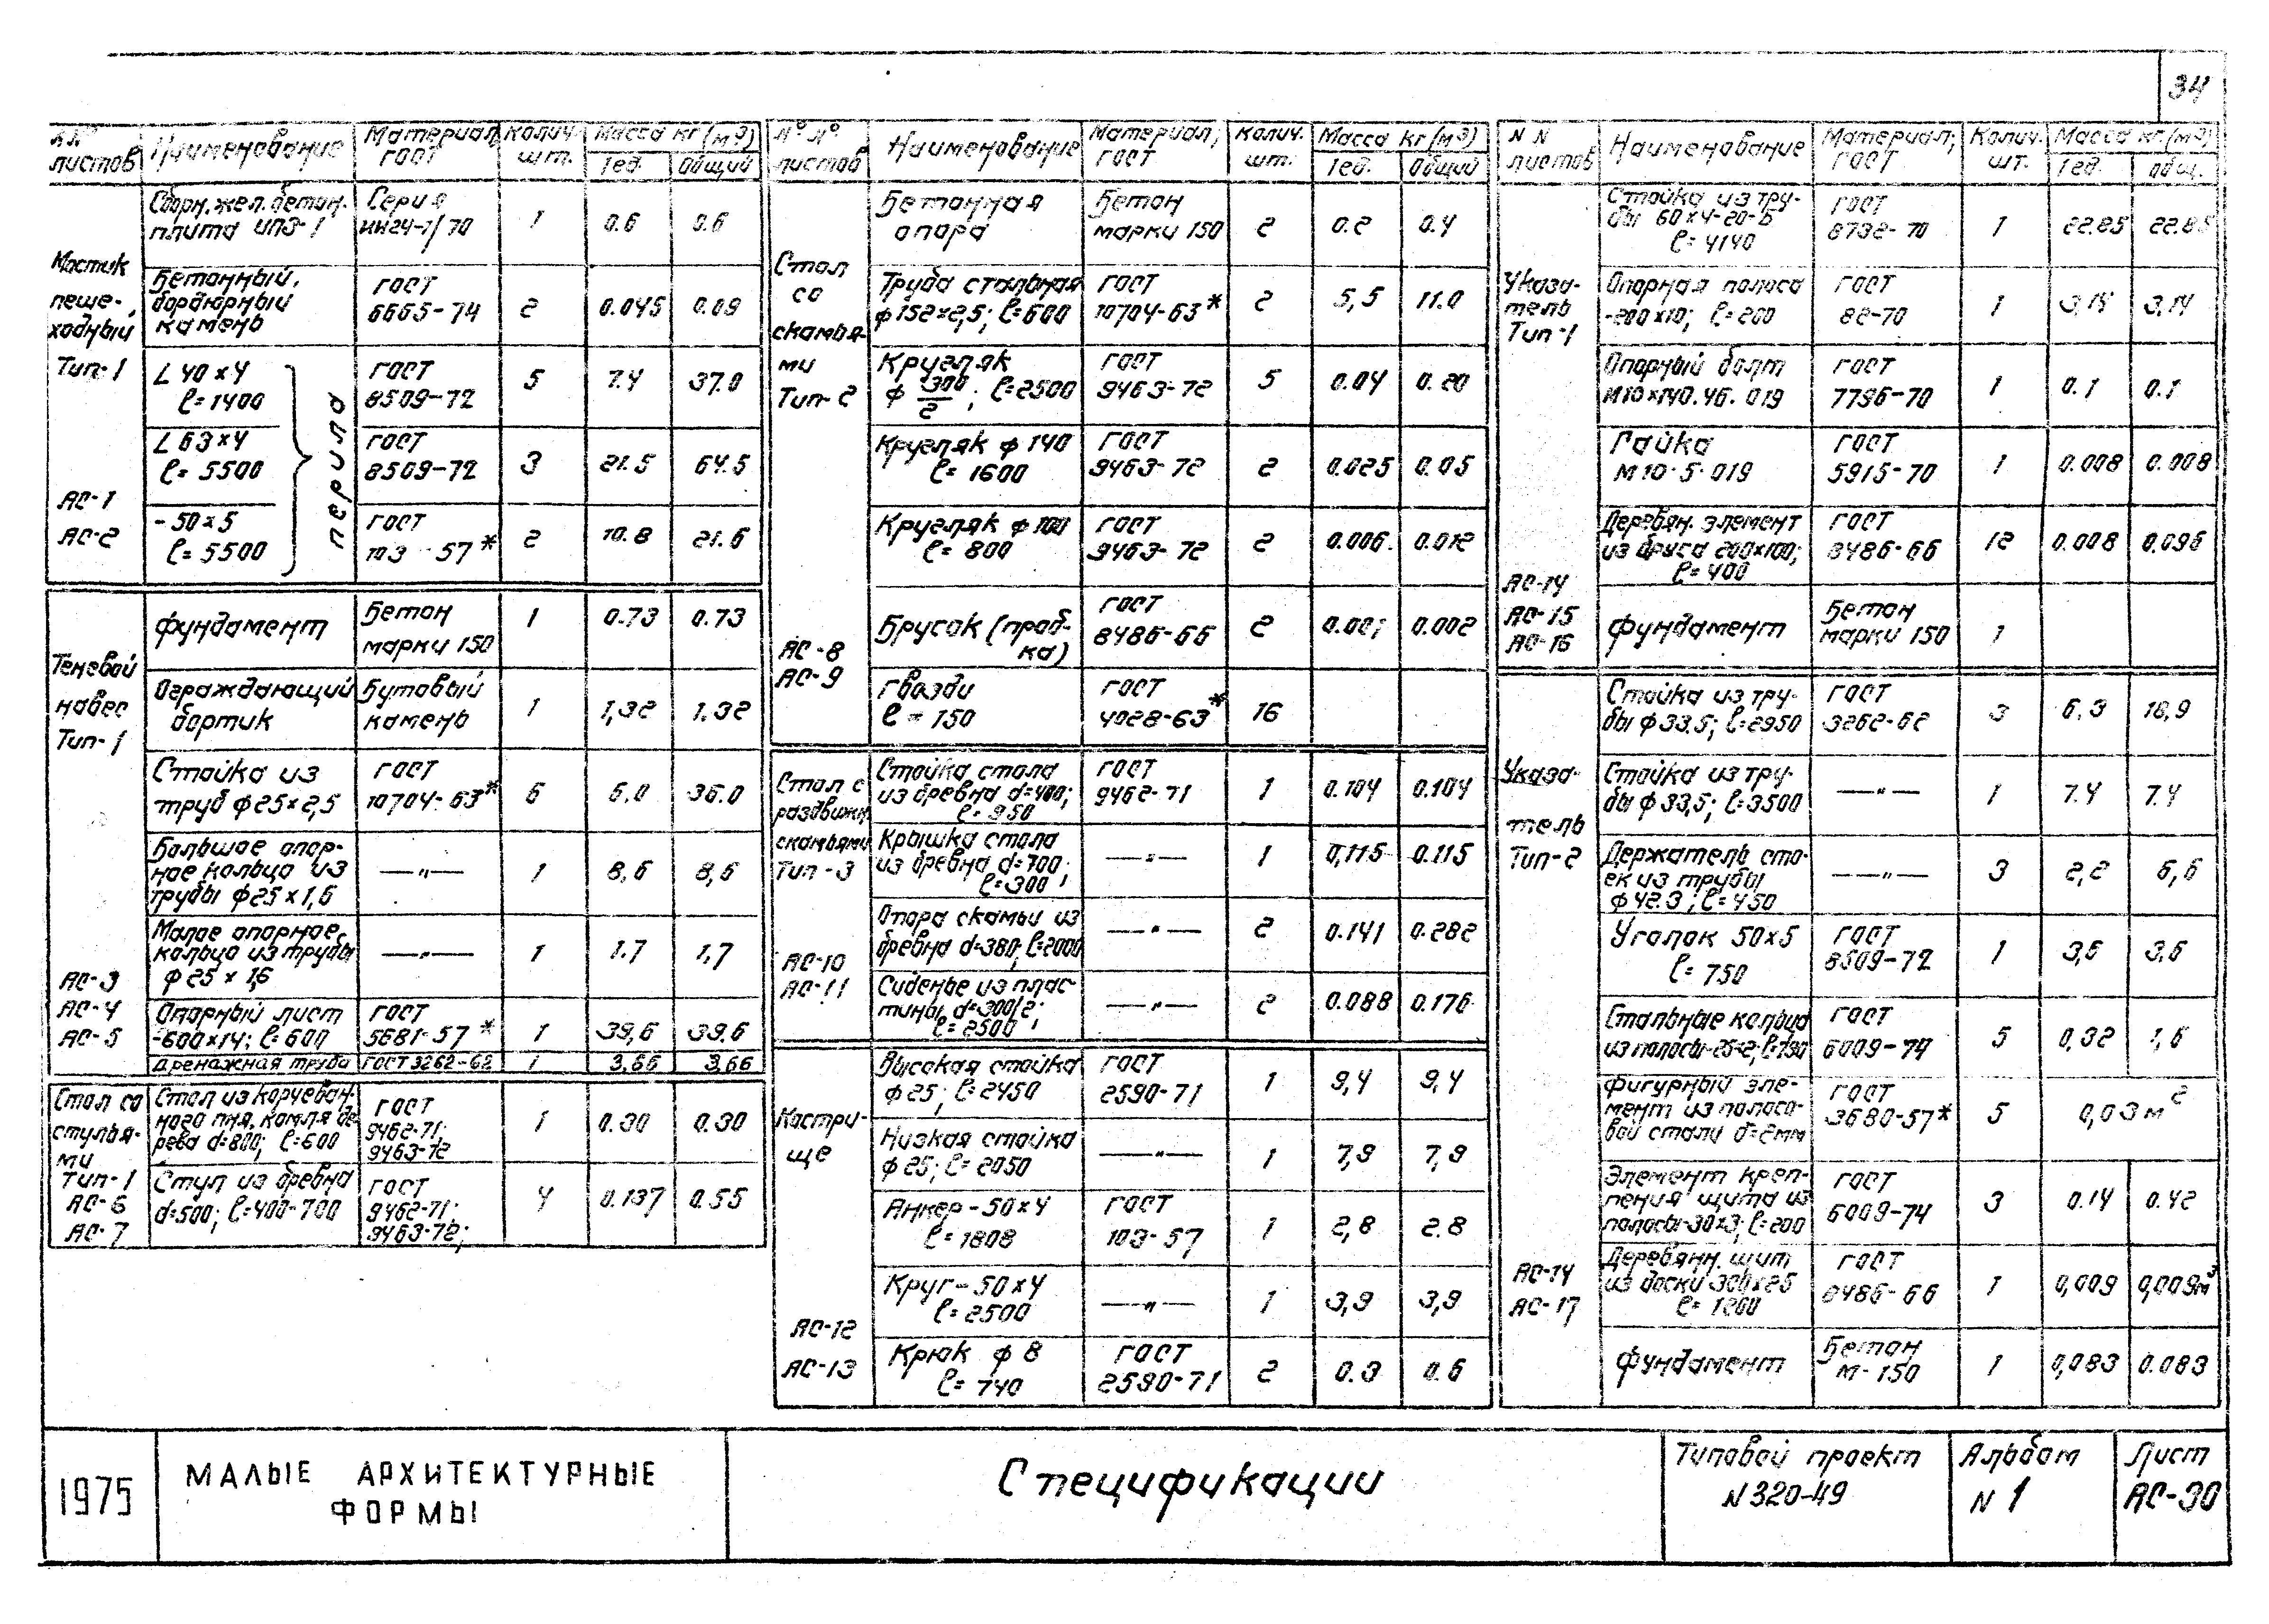 34
№№ листов | Наименование | Материал, ГОСТ | Колич. шт. | Масса кг (м³) 1ед. | Общий
Мостик пешеходный Тип-1 АС-1 АС-2
Сборн. жел. бетон. плита ИПЗ-1 | Серия ИИ24-1/70 | 1 | 0.6 | 0.6
Бетонный, бордюрный камень | ГОСТ 6665-74 | 2 | 0.045 | 0.09
перила
L 40×4 ℓ=1400 | ГОСТ 8509-72 | 5 | 7.4 | 37.0
L 63×4 ℓ=5500 | ГОСТ 8509-72 | 3 | 21.5 | 64.5
-50×5 ℓ=5500 | ГОСТ 103-57* | 2 | 10.8 | 21.6
Теневой навес Тип-1 АС-3 АС-4 АС-5
Фундамент | Бетон марки 150 | 1 | 0.73 | 0.73
Ограждающий бортик | Бутовый камень | 1 | 1,32 | 1.32
Стойка из труб ф25×2,5 | ГОСТ 10704-63* | 6 | 6,0 | 36.0
Большое опорное кольцо из трубы ф25×1,6 | —"— | 1 | 8,6 | 8,6
Малое опорное кольцо из трубы ф25×1,6 | —"— | 1 | 1.7 | 1,7
Опорный лист -600×14; ℓ=600 | ГОСТ 5681-57* | 1 | 39,6 | 39.6
Дренажная труба | ГОСТ 3262-62 | 1 | 3,66 | 3,66
Стол со стульями Тип-1 АС-6 АС-7
Стол из корчеванного пня, комля дерева d=800; ℓ=600 | ГОСТ 9462-71; 9463-72 | 1 | 0.30 | 0.30
Стул из бревна d=500; ℓ=400-700 | ГОСТ 9462-71; 9463-72; | 4 | 0.137 | 0.55
№ №. листов | Наименование | Материал, ГОСТ | Колич. шт. | Масса кг (м³) 1ед. | Общий
Стол со скамьями Тип-2 АС-8 АС-9
Бетонная опора | Бетон марки 150 | 2 | 0.2 | 0.4
Труба стальная ф152×2,5; ℓ=600 | ГОСТ 10704-63* | 2 | 5,5 | 11.0
Кругляк ф 300/2; ℓ=2500 | ГОСТ 9463-72 | 5 | 0.04 | 0.20
Кругляк ф140 ℓ=1600 | ГОСТ 9463-72 | 2 | 0.025 | 0.05
Кругляк ф100 ℓ=800 | ГОСТ 9463-72 | 2 | 0.006. | 0.012
Брусок (пробка) | ГОСТ 8486-66 | 2 | 0.001 | 0.002
Гвозди ℓ=150 | ГОСТ 4028-63* | 16
Стол с раздвижн. скамьями Тип-3 АС-10 АС-11
Стойка стола из бревна d=400; ℓ=950 | ГОСТ 9462-71 | 1 | 0.104 | 0.104
Крышка стола из бревна d=700; ℓ=300 | —"— | 1 | 0,115 | 0.115
Опора скамьи из бревна d=380; ℓ=2000 | —"— | 2 | 0.141 | 0.282
Сиденье из пластины, d=300/2; ℓ=2500 | —"— | 2 | 0.088 | 0.176
Кострище АС-12 АС-13
Высокая стойка ф25; ℓ=2450 | ГОСТ 2590-71 | 1 | 9,4 | 9,4
Низкая стойка ф25; ℓ=2050 | —"— | 1 | 7,9 | 7,9
Анкер-50×4 ℓ=1808 | ГОСТ 103-57 | 1 | 2,8 | 2.8
Круг-50×4 ℓ=2500 | —"— | 1 | 3,9 | 3,9
Крюк ф8 ℓ=740 | ГОСТ 2590-71 | 2 | 0.3 | 0.6
N N листов | Наименование | Материал; ГОСТ | Колич. шт. | Масса кг (м³) 1ед. | общ.
Указатель Тип-1 АС-14 АС-15 АС-16
Стойка из трубы 60×4-20-Б ℓ=4140 | ГОСТ 8732-70 | 1 | 22.85 | 22.85
Опорная полоса -200×10; ℓ=200 | ГОСТ 82-70 | 1 | 3,14 | 3,14
Опорный болт М10×140.46.019 | ГОСТ 7796-70 | 1 | 0.1 | 0.1
Гайка М10·5·019 | ГОСТ 5915-70 | 1 | 0.008 | 0.008
Деревян. элемент из бруса 200×100; ℓ=400 | ГОСТ 8486-66 | 12 | 0.008 | 0.096
Фундамент | Бетон марки 150 | 1
Указатель Тип-2 АС-14 АС-17
Стойка из трубы ф33.5; ℓ=2950 | ГОСТ 3262-62 | 3 | 6,3 | 18,9
Стойка из трубы ф33,5; ℓ=3500 | —"— | 1 | 7.4 | 7.4
Держатель стоек из трубы ф42.3; ℓ=450 | —"— | 3 | 2,2 | 6,6
Уголок 50×5 ℓ=750 | ГОСТ 8509-72 | 1 | 3,6 | 3,6
Стальные кольца из полосы-25×2; ℓ=790 | ГОСТ 6009-74 | 5 | 0,32 | 1,6
Фигурный элемент из полосовой стали δ=2мм | ГОСТ 3680-57* | 5 | 0,03 м²
Элемент крепления щита из полосы-30×3; ℓ=200 | ГОСТ 6009-74 | 3 | 0.14 | 0.42
Деревянн. щит из доски 300×25 ℓ=1200 | ГОСТ 8486-66 | 1 | 0,009 | 0,009м³
Фундамент | Бетон М-150 | 1 | 0,083 | 0.083
1975
МАЛЫЕ АРХИТЕКТУРНЫЕ
ФОРМЫ
Спецификации
Типовой проект
N 320-49
Альбом
N 1
Лист
АС-30